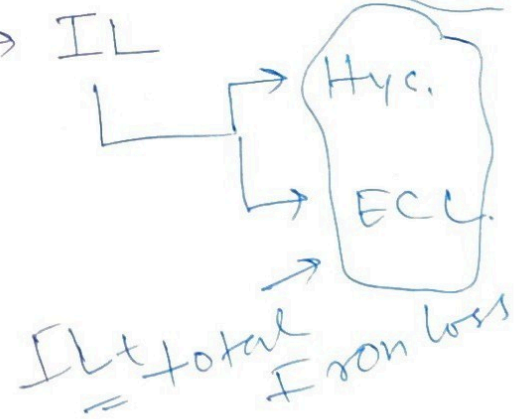 IL
Hyc.
ECL.
ILt total Iron loss